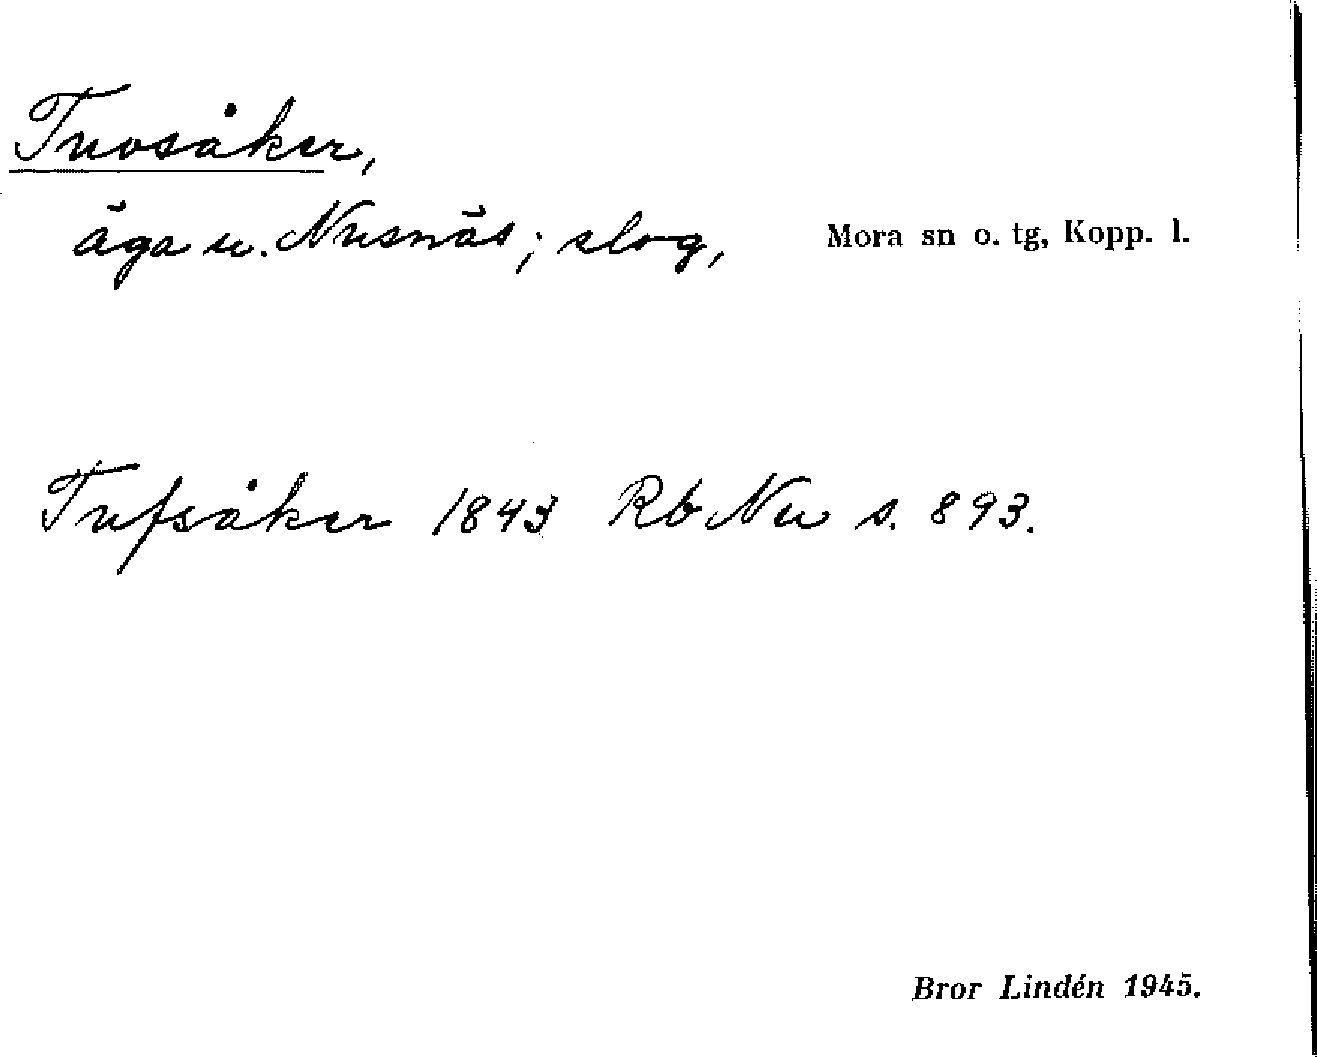 Tuvsåker,
äga u. Nusnäs; slog, Mora sn o. tg, Kopp. l.
Tufsåker 1843 Rb Nu s. 893.
Bror Lindén 1945.